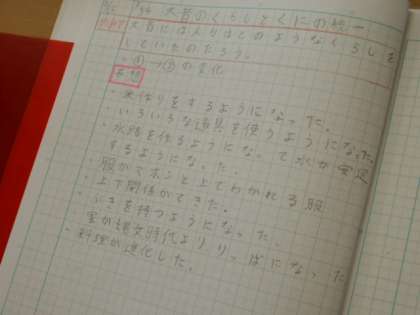 大昔のくらしとくにの統一
大昔には人々はどのようなくらしを
していたのだろう。
の変化
・米作りをするようになった。
・いろいろな道具を使うようになった。
・水路を作るようになって水が安定
するようになった。
・服がズボンと上でわかれる服
・上下関係ができた。
・ぶきを持つようになった。
・家が縄文時代よりりっぱになった
・料理が進化した。